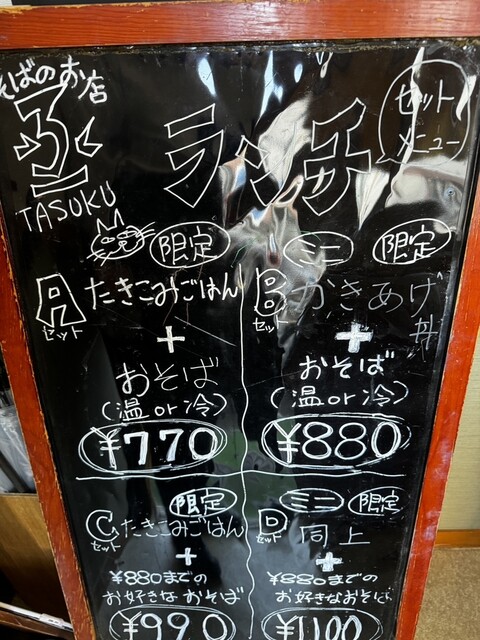 そばのお店
丞
TASUKU
ランチ
セット
メニュー
限定
Aセット
たきこみごはん
+
おそば
(温or冷)
¥770
ミニ 限定
Bセット
かきあげ丼
+
おそば
(温or冷)
¥880
限定
Cセット
たきこみごはん
+
¥880までの
お好きなおそば
¥990
ミニ 限定
Dセット
同上
+
¥880までの
お好きなおそば
¥1100